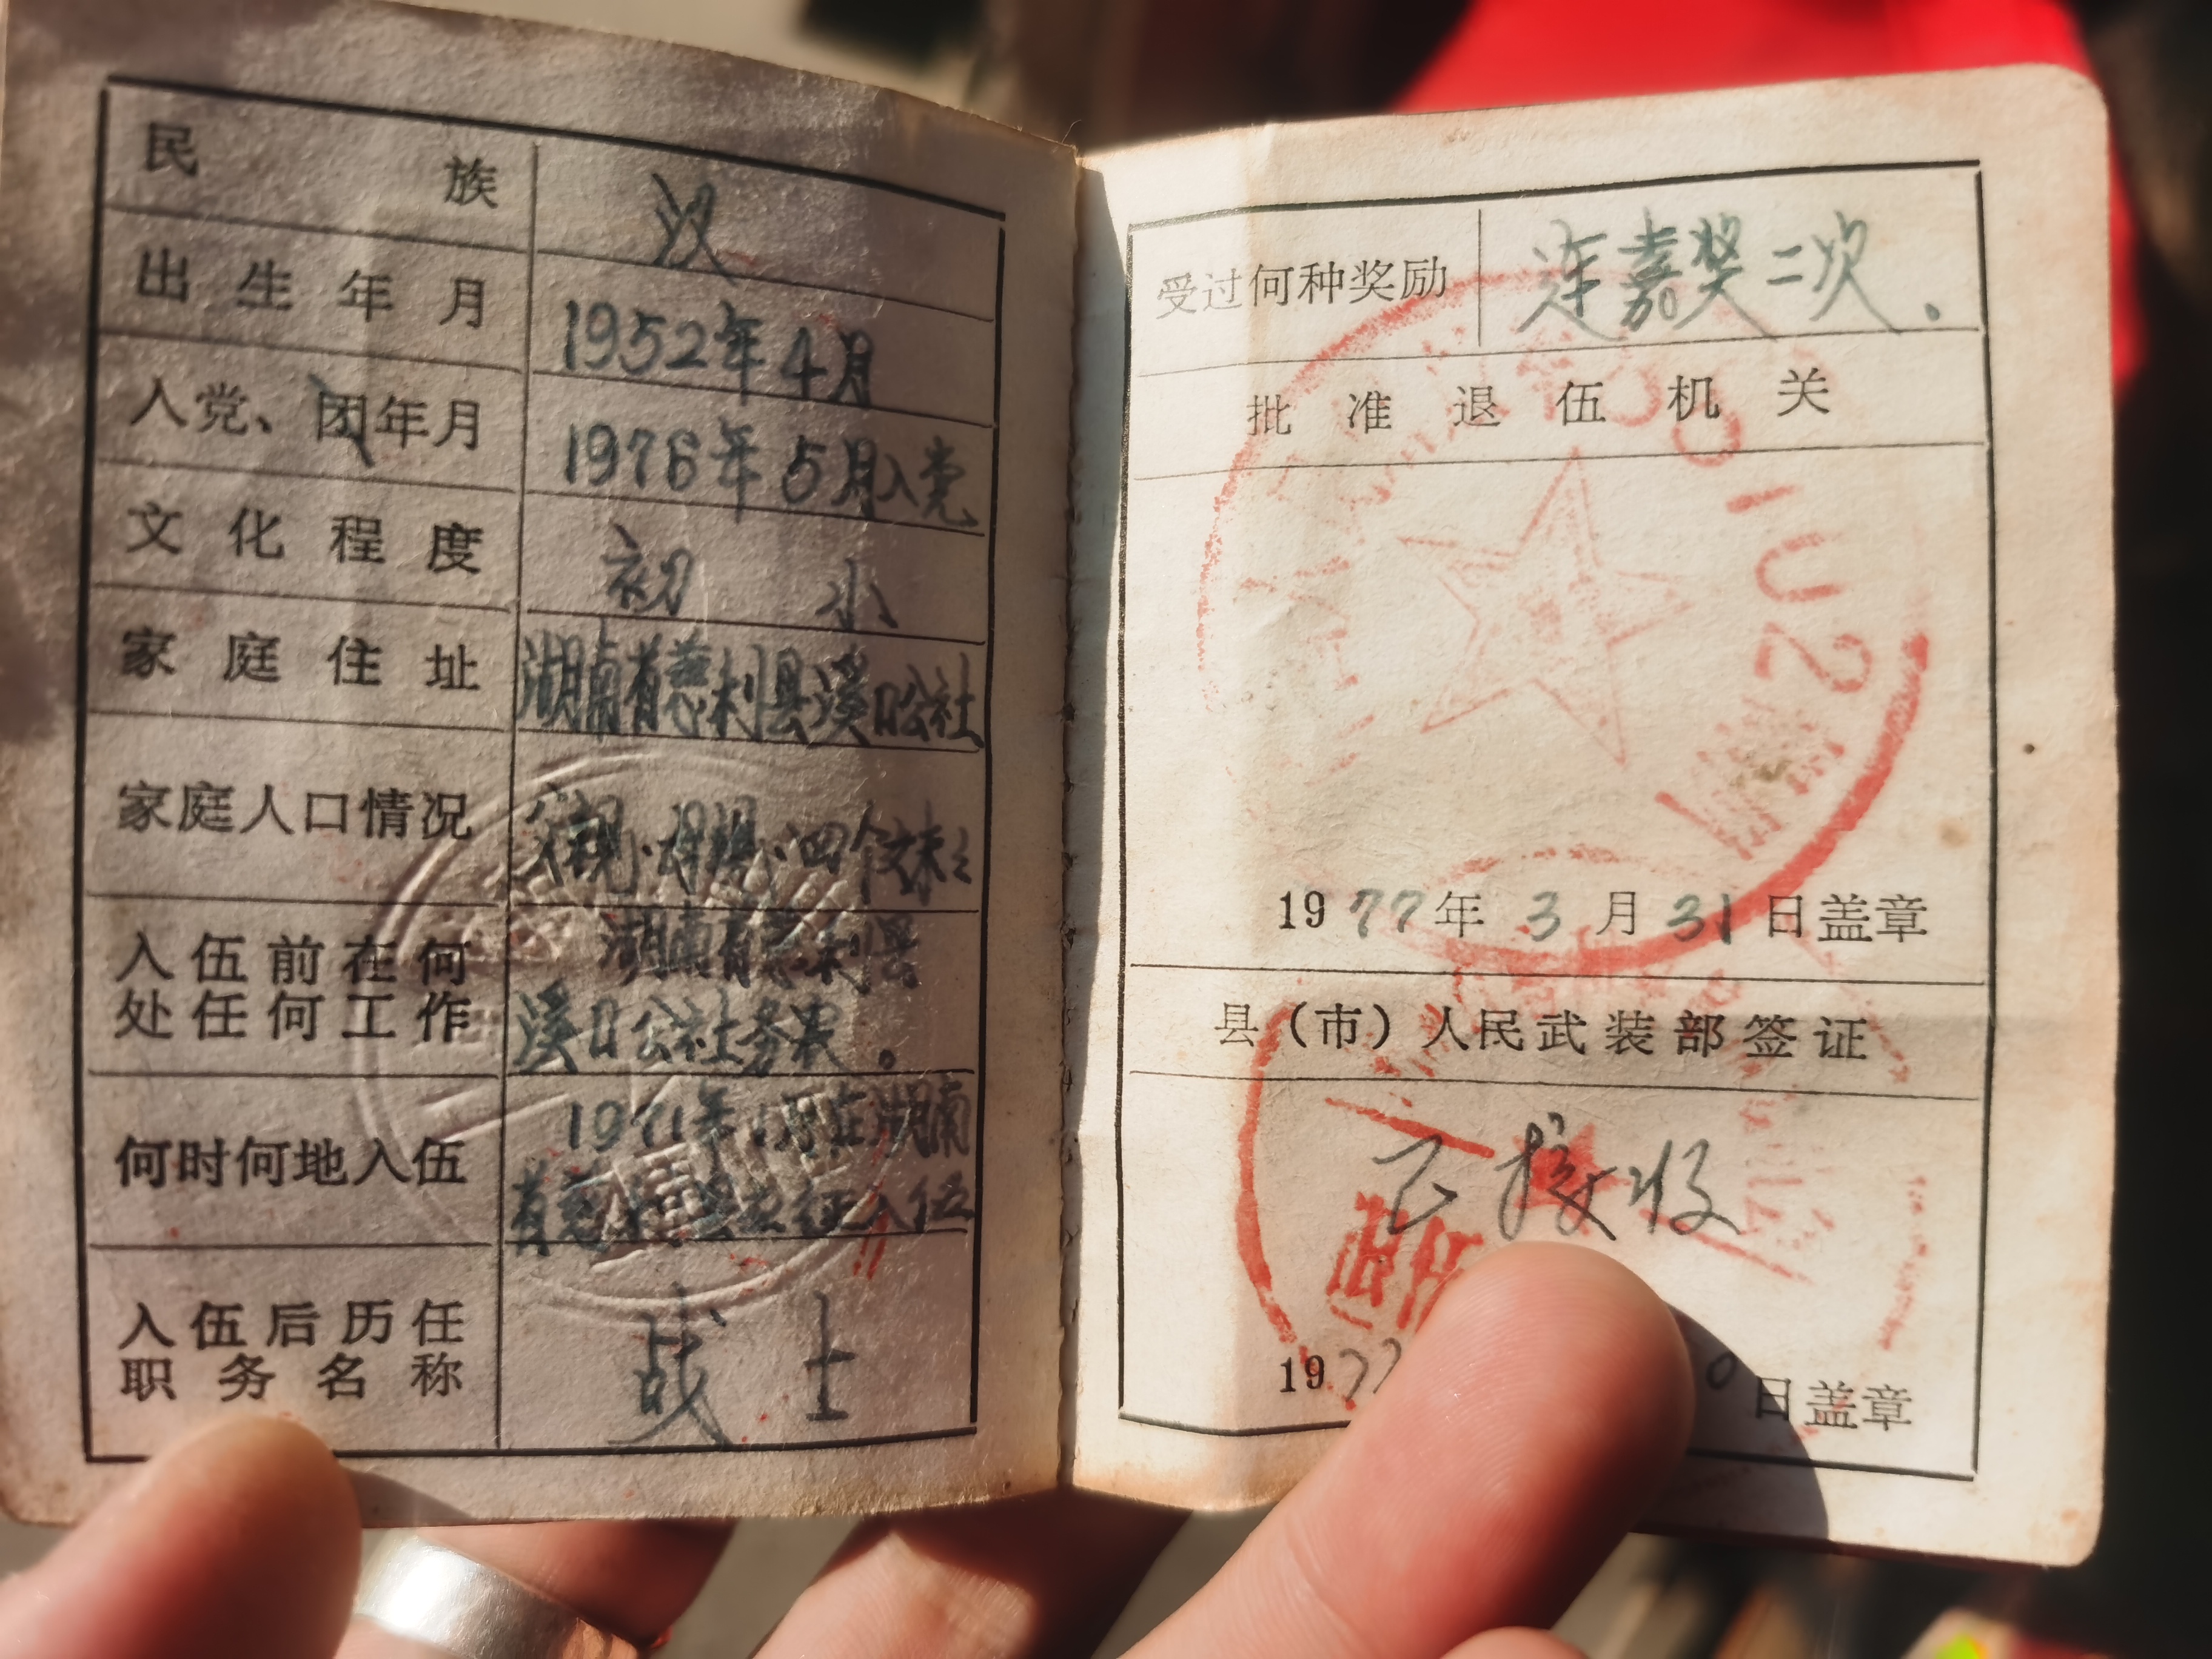 民族 汉
出生年月 1952年4月
入党、团年月 1976年5月入党
文化程度 初小
家庭住址 湖南省慈利县溪口公社
家庭人口情况 父亲·母親·四个妹
入伍前在何 湖南省慈利县
处任何工作 溪口公社务农.
何时何地入伍 1971年 在湖南
省慈利县应征入伍
入伍后历任
职务名称 战士
受过何种奖励 连嘉奖二次.
批准退伍机关
1977年3月31日盖章
县(市)人民武装部签证
已接收
1977 日盖章